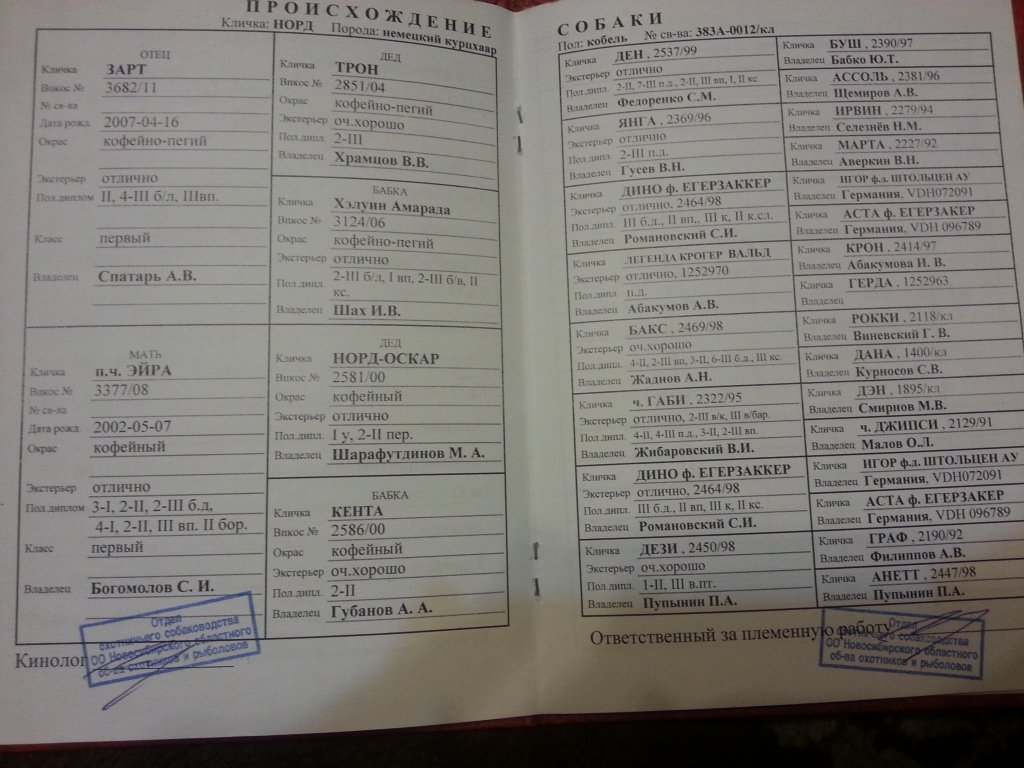 ПРОИСХОЖДЕНИЕ
Кличка: НОРД Порода: немецкий курцхаар
ОТЕЦ
Кличка ЗАРТ
Впкос № 3682/11
№ св-ва
Дата рожд. 2007-04-16
Окрас кофейно-пегий
Экстерьер отлично
Пол.диплом II, 4-III б/л, IIIвп.
Класс первый
Владелец Спатарь А.В.
МАТЬ
Кличка п.ч. ЭЙРА
Впкос № 3377/08
№ св-ва
Дата рожд. 2002-05-07
Окрас кофейный
Экстерьер отлично
Пол.диплом 3-I, 2-II, 2-III б.д,
4-I, 2-II, III вп. II бор.
Класс первый
Владелец Богомолов С. И.
ДЕД
Кличка ТРОН
Впкос № 2851/04
Окрас кофейно-пегий
Экстерьер оч.хорошо
Пол.дипл. 2-III
Владелец Храмцов В.В.
БАБКА
Кличка Хэлуин Амарада
Впкос № 3124/06
Окрас кофейно-пегий
Экстерьер отлично
Пол.дипл. 2-III б/л, I вп, 2-III б/в, II
кс.
Владелец Шах И.В.
ДЕД
Кличка НОРД-ОСКАР
Впкос № 2581/00
Окрас кофейный
Экстерьер отлично
Пол.дипл. I у, 2-II пер.
Владелец Шарафутдинов М. А.
БАБКА
Кличка КЕНТА
Впкос № 2586/00
Окрас кофейный
Экстерьер оч.хорошо
Пол.дипл. 2-II
Владелец Губанов А. А.
Кинолог
Отдел
охотничьего собаководства
ОО Новосибирского областного
об-ва охотников и рыболовов
СОБАКИ
Пол: кобель № св-ва: 383А-0012/кл
Кличка ДЕН , 2537/99
Экстерьер отлично
Пол.дипл. 2-II, 7-III п.д., 2-II, III вп, I, II кс.
Владелец Федоренко С.М.
Кличка ЯНГА , 2369/96
Экстерьер отлично
Пол.дипл. 2-III п.д.
Владелец Гусев В.Н.
Кличка ДИНО ф. ЕГЕРЗАККЕР
Экстерьер отлично, 2464/98
Пол.дипл. III б.д., II вп,, III к, II к.сл.
Владелец Романовский С.И.
Кличка ЛЕГЕНДА КРОГЕР ВАЛЬД
Экстерьер отлично, 1252970
Пол.дипл. п.д.
Владелец Абакумов А.В.
Кличка БАКС , 2469/98
Экстерьер оч.хорошо
Пол.дипл. 4-II, 2-III вп, 3-II, 6-III б.д., III кс.
Владелец Жаднов А.Н.
Кличка ч. ГАБИ , 2322/95
Экстерьер отлично, 2-III в/к, III в/бар.
Пол.дипл. 4-II, 4-III п.д., 3-II, 2-III вп.
Владелец Жибаровский В.И.
Кличка ДИНО ф. ЕГЕРЗАККЕР
Экстерьер отлично, 2464/98
Пол.дипл. III б.д., II вп, III к, II кс.
Владелец Романовский С.И.
Кличка ДЕЗИ , 2450/98
Экстерьер оч.хорошо
Пол.дипл. 1-II, III в.пт.
Владелец Пупынин П.А.
Кличка БУШ , 2390/97
Владелец Бабко Ю.Т.
Кличка АССОЛЬ , 2381/96
Владелец Щемиров А.В.
Кличка ИРВИН , 2279/94
Владелец Селезнёв Н.М.
Кличка МАРТА , 2227/92
Владелец Аверкин В.Н.
Кличка ИГОР ф.л. ШТОЛЬЦЕН АУ
Владелец Германия, VDH072091
Кличка АСТА ф. ЕГЕРЗАКЕР
Владелец Германия, VDH 096789
Кличка КРОН , 2414/97
Владелец Абакумова И. В.
Кличка ГЕРДА , 1252963
Владелец
Кличка РОККИ , 2118/кл
Владелец Виневский Г. В.
Кличка ДАНА , 1400/кл
Владелец Курносов С.В.
Кличка ДЭН , 1895/кл
Владелец Смирнов М.В.
Кличка ч. ДЖИПСИ , 2129/91
Владелец Малов О.Л.
Кличка ИГОР ф.л. ШТОЛЬЦЕН АУ
Владелец Германия, VDH072091
Кличка АСТА ф. ЕГЕРЗАКЕР
Владелец Германия, VDH 096789
Кличка ГРАФ , 2190/92
Владелец Филиппов А.В.
Кличка АНЕТТ , 2447/98
Владелец Пупынин П.А.
Ответственный за племенную работу
Отдел
охотничьего собаководства
ОО Новосибирского областного
об-ва охотников и рыболовов